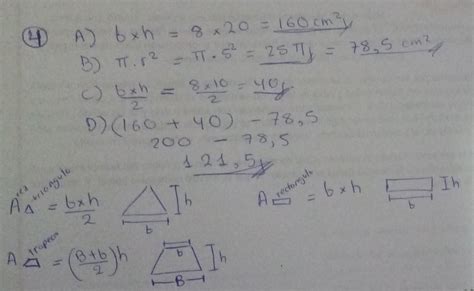 4 A) b x h = 8 x 20 = 160 cm²
B) π.r² = π.5² = 25π = 78,5 cm²
C) b x h / 2 = 8 x 10 / 2 = 40
D) (160 + 40) - 78,5
200 - 78,5
121,5
A triangulo = b x h / 2 h b
A rectangulo = b x h h b
A trapecio = (B + b / 2) h b h B